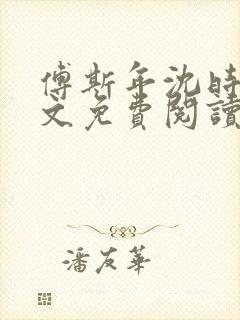 傅斯年沈時
文免費閱讀
潘友華